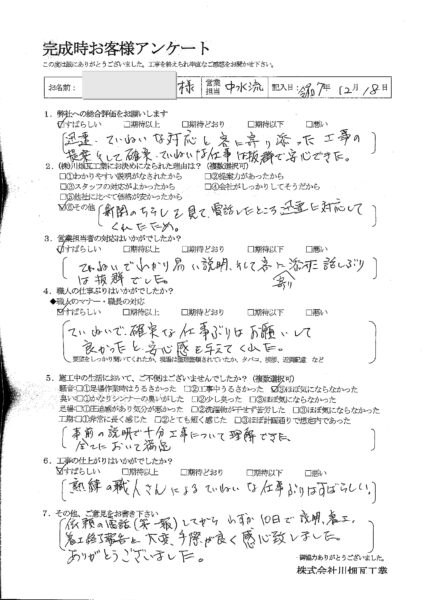 完成時お客様アンケート
この度は誠にありがとうございました。工事を終えられ率直なご感想をお聞かせ下さい。
お名前: 様 営業担当 中水流 記入日: 令和7年 12月 18日
1. 弊社への総合評価をお願いします
☑すばらしい □期待以上 □期待どおり □期待以下 □悪い
迅速、ていねいな対応と客に寄り添った工事の
提案そして確実、ていねいな仕事は抜群で安心できた。
2. (株)川畑瓦工業にお決めになられた理由は?(複数選択可)
□①わかりやすい説明がなされたから □②提案力があったから
□③スタッフの対応がよかったから □④会社がしっかりしてそうだから
□⑤他社に比べて価格が安かったから
☑⑥その他 新聞のちらしを見て、電話したところ迅速に対応して
くれたため。
3. 営業担当者の対応はいかがでしたか?
☑すばらしい □期待以上 □期待どおり □期待以下 □悪い
ていねいでわかり易い説明、そして客に寄り添う話しぶり
は抜群でした。
4. 職人の仕事ぶりはいかがでしたか?
◆職人のマナー・職長の対応
☑すばらしい □期待以上 □期待どおり □期待以下 □悪い
ていねいで、確実な仕事ぶりはお願いして
良かったと、安心感を与えてくれた。
5. 施工中の生活において、ご不便はございませんでしたか?(複数選択可)
騒音□①足場作業時はうるさかった □②工事中うるさかった ☑③ほぼ気にならなかった
臭い□①かなりシンナーの臭いがした □②少し臭った □③ほぼ気にならなかった
足場□①圧迫感があり気分が悪かった □②洗濯物が干せず苦労した □③ほぼ気にならなかった
工期□①非常に長く感じた □②とても短く感じた □③ほぼ計画通りで想定内であった
事前の説明で十分工事について理解できた。
全てにおいて満足
6. 工事の仕上がりはいかがでしたか?
☑すばらしい □期待以上 □期待どおり □期待以下 □悪い
熟練の職人さんによるていねいな仕事ぶりはすばらしい。
7. その他、ご意見をお書き下さい
依頼の電話(第一報)してからわずか10日で説明、着工、
着工終了報告と大変、手際が良く感心致しました。
ありがとうございました。
御協力ありがとうございました。
株式会社川畑瓦工業